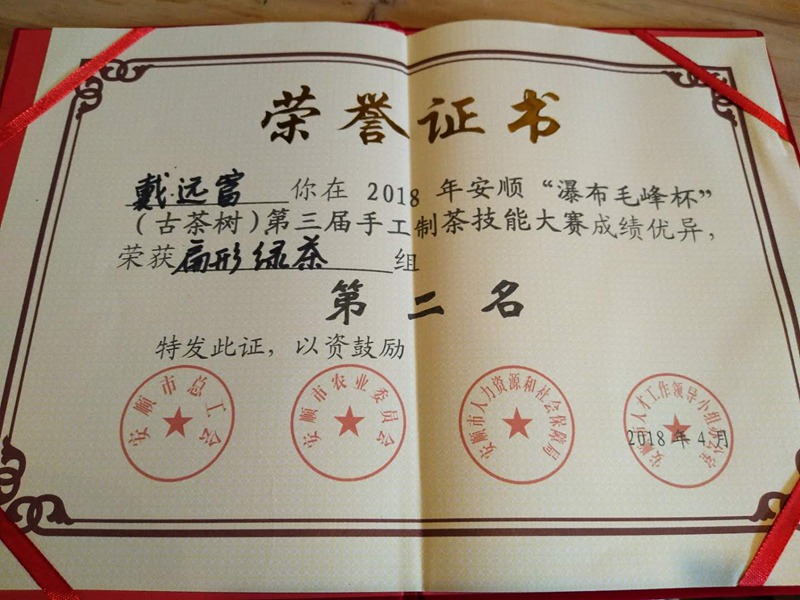 荣誉证书
戴远富 你在 2018 年安顺“瀑布毛峰杯”
(古茶树)第三届手工制茶技能大赛成绩优异,
荣获扁形绿茶组
第二名
特发此证,以资鼓励
安顺市总工会
安顺市农业委员会
安顺市人力资源和社会保障局
安顺市人才工作领导小组办公室
2018 年 4 月